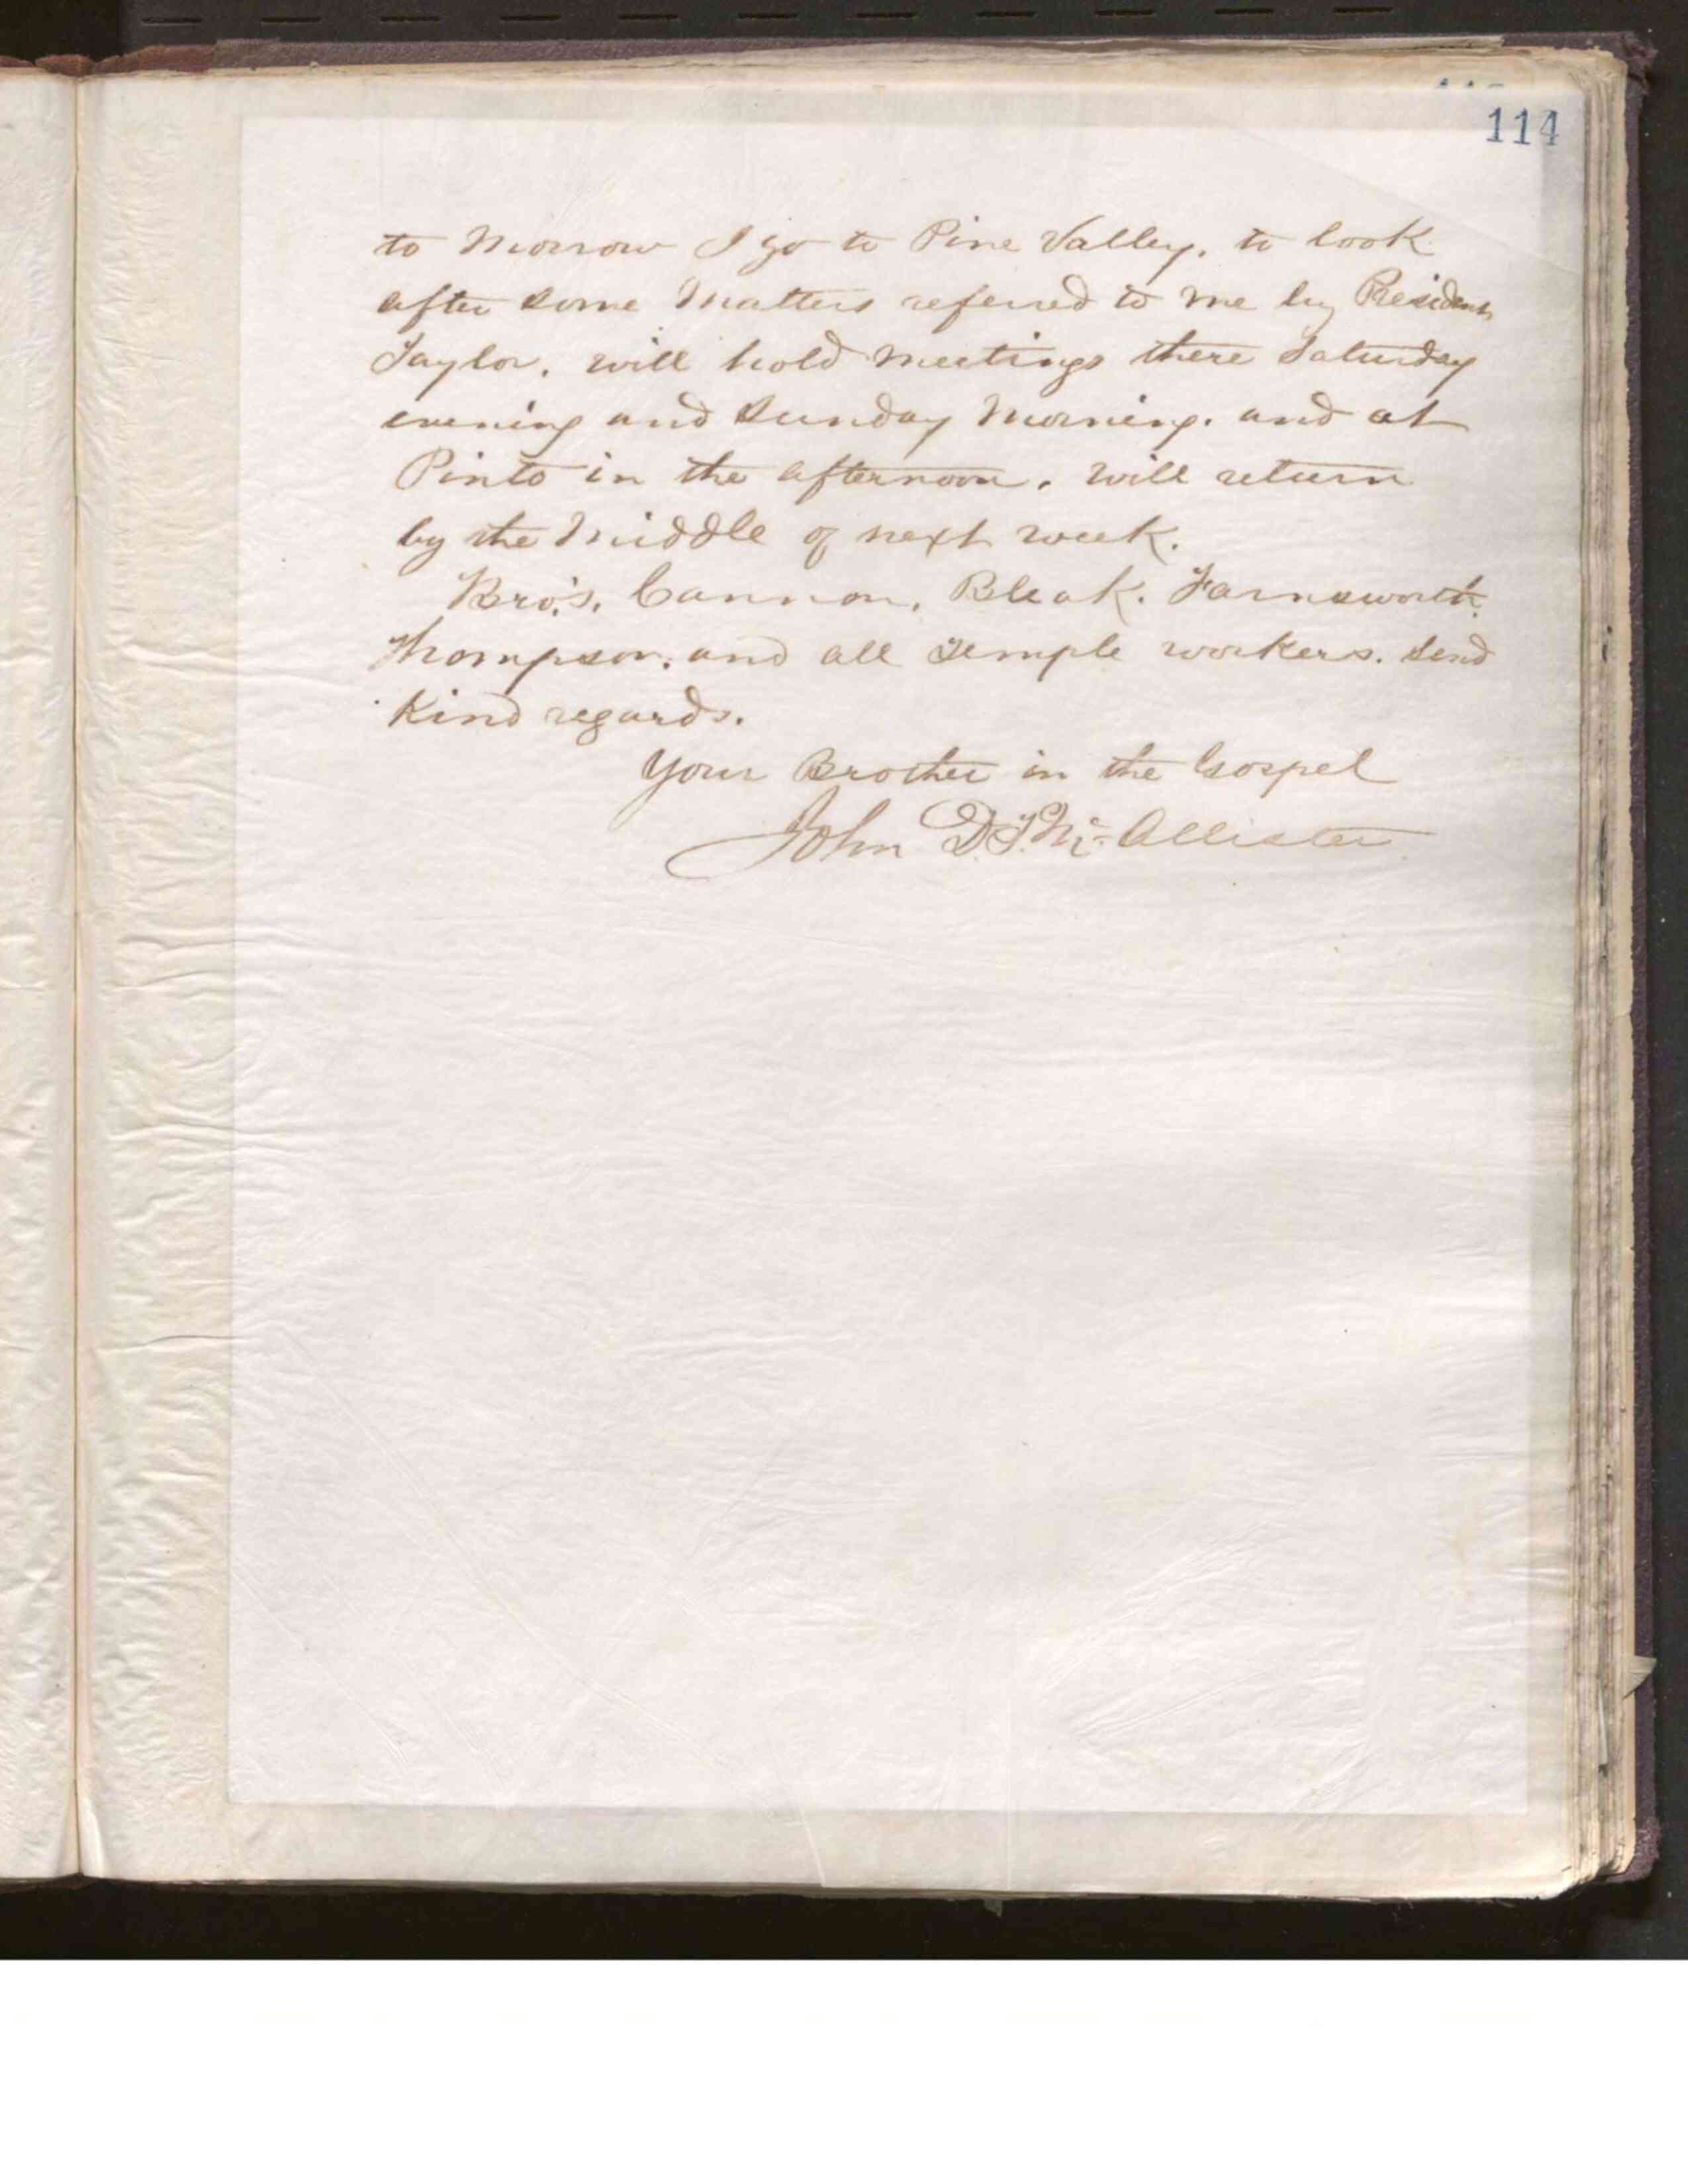 114
to Morrow I go to Pine Valley. to look
after some Matters referred to me by President
Taylor. will hold meetings there Saturday
evening and Sunday Morning. and at
Pinto in the afternoon. will return
by the Middle of next week.
Bro's. Cannon. Bleak. Farnsworth.
Thompson. and all Temple workers. send
Kind regards.
Your Brother in the Gospel
John D. T. McAllister